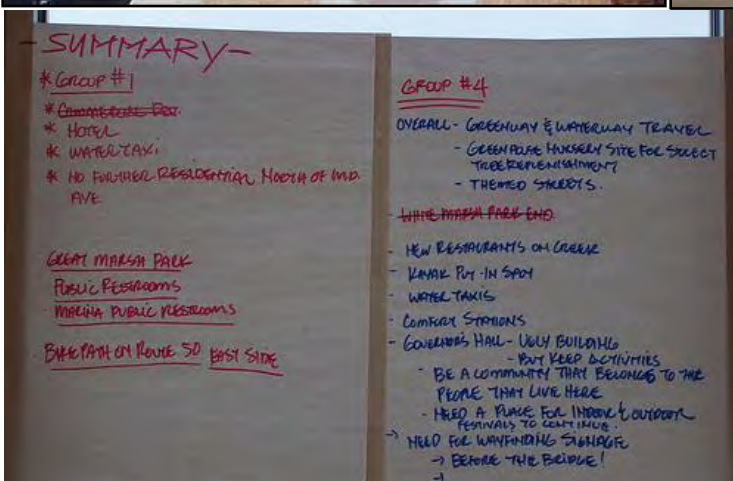 -SUMMARY-
* GROUP #1
* COMMERCIAL DEV.
* HOTEL
* WATER TAXI
* NO FURTHER RESIDENTIAL NORTH OF MD.
AVE
GREAT MARSH PARK
PUBLIC RESTROOMS
- MARINA PUBLIC RESTROOMS
- BIKE PATH ON ROUTE 50 EAST SIDE
GROUP #4
OVERALL - GREENWAY & WATERWAY TRAVEL
- GREENHOUSE NURSERY SITE FOR STREET
TREE REPLENISHMENT
- THEMED STREETS.
- WHITE MARSH PARK END
- NEW RESTAURANTS ON CREEK
- KAYAK PUT-IN SPOT
- WATER TAXIS
- COMFORT STATIONS
- GOVERNORS HALL - UGLY BUILDING
- BUT KEEP ACTIVITIES
- BE A COMMUNITY THAT BELONGS TO THE
PEOPLE THAT LIVE HERE
- NEED A PLACE FOR INDOOR & OUTDOOR
FESTIVALS TO CONTINUE.
-> NEED FOR WAYFINDING SIGNAGE
-> BEFORE THE BRIDGE!
->